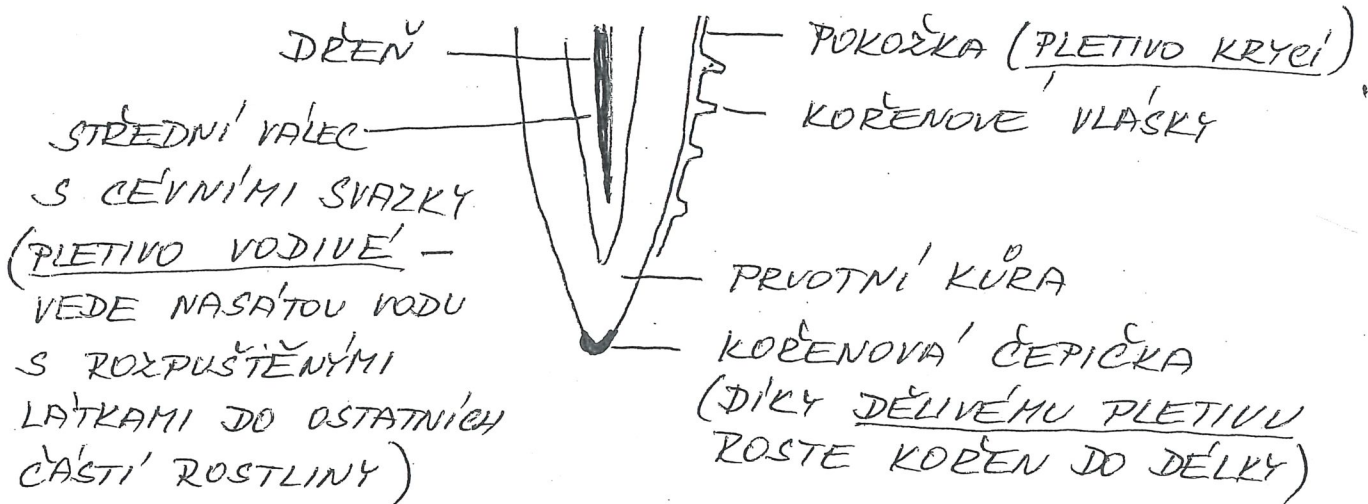 DŘEŇ
STŘEDNÍ VÁLEC
S CÉVNÍMI SVAZKY
(PLETIVO VODIVÉ –
VEDE NASÁTOU VODU
S ROZPUŠTĚNÝMI
LÁTKAMI DO OSTATNÍCH
ČÁSTÍ ROSTLINY)
POKOŽKA (PLETIVO KRYCÍ)
KOŘENOVÉ VLÁSKY
PRVOTNÍ KŮRA
KOŘENOVÁ ČEPIČKA
(DÍKY DĚLIVÉMU PLETIVU
ROSTE KOŘEN DO DÉLKY)